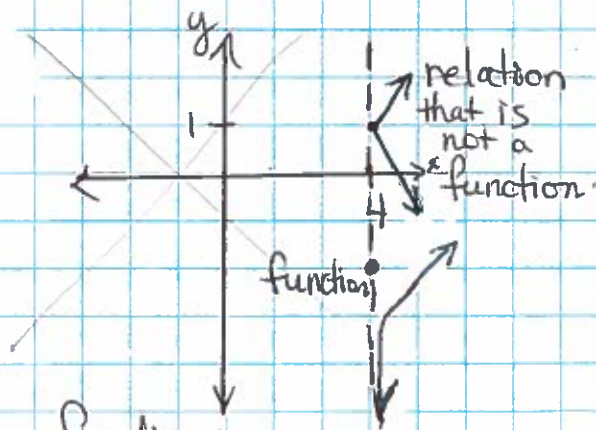 y
relation
that is
1
not a
x
function.
4
function